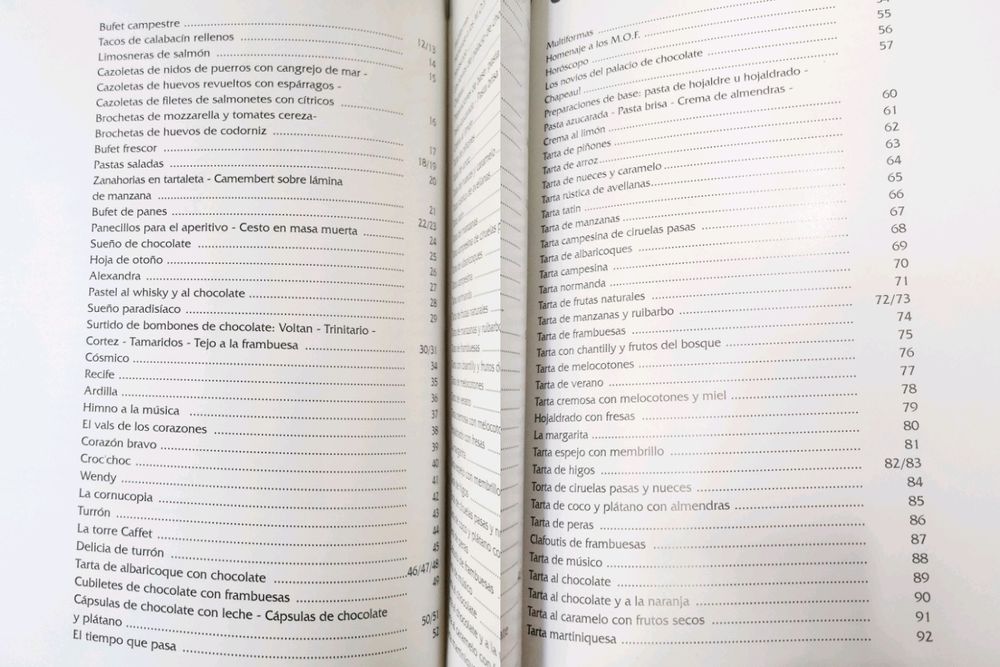 Bufet campestre 12/13
Tacos de calabacín rellenos 14
Limosneras de salmón 15
Cazoletas de nidos de puerros con cangrejo de mar -
Cazoletas de huevos revueltos con espárragos -
Cazoletas de filetes de salmonetes con cítricos 16
Brochetas de mozzarella y tomates cereza-
Brochetas de huevos de codorniz 17
Bufet frescor 18/19
Pastas saladas 20
Zanahorias en tartaleta - Camembert sobre lámina
de manzana 21
Bufet de panes 22/23
Panecillos para el aperitivo - Cesto en masa muerta 24
Sueño de chocolate 25
Hoja de otoño 26
Alexandra 27
Pastel al whisky y al chocolate 28
Sueño paradisíaco 29
Surtido de bombones de chocolate: Voltan - Trinitario -
Cortez - Tamaridos - Tejo a la frambuesa 30/31
Cósmico 34
Recife 35
Ardilla 36
Himno a la música 37
El vals de los corazones 38
Corazón bravo 39
Croc'choc 40
Wendy 41
La cornucopia 42
Turrón 43
La torre Caffet 44
Delicia de turrón 45
Tarta de albaricoque con chocolate 46/47/48
Cubiletes de chocolate con frambuesas 49
Cápsulas de chocolate con leche - Cápsulas de chocolate
y plátano 50/51
El tiempo que pasa 52
Multiformas
Homenaje a los M.O.F.
Horóscopo 55
Los novios del palacio de chocolate 56
Chapeau! 57
Preparaciones de base: pasta de hojaldre u hojaldrado -
Pasta azucarada - Pasta brisa - Crema de almendras -
Crema al limón 60
Tarta de piñones 61
Tarta de arroz 62
Tarta de nueces y caramelo 63
Tarta rústica de avellanas 64
Tarta tatin 65
Tarta de manzanas 66
Tarta campesina de ciruelas pasas 67
Tarta de albaricoques 68
Tarta campesina 69
Tarta normanda 70
Tarta de frutas naturales 71
Tarta de manzanas y ruibarbo 72/73
Tarta de frambuesas 74
Tarta con chantilly y frutos del bosque 75
Tarta de melocotones 76
Tarta de verano 77
Tarta cremosa con melocotones y miel 78
Hojaldrado con fresas 79
La margarita 80
Tarta espejo con membrillo 81
Tarta de higos 82/83
Torta de ciruelas pasas y nueces 84
Tarta de coco y plátano con almendras 85
Tarta de peras 86
Clafoutis de frambuesas 87
Tarta de músico 88
Tarta al chocolate 89
Tarta al chocolate y a la naranja 90
Tarta al caramelo con frutos secos 91
Tarta martiniquesa 92